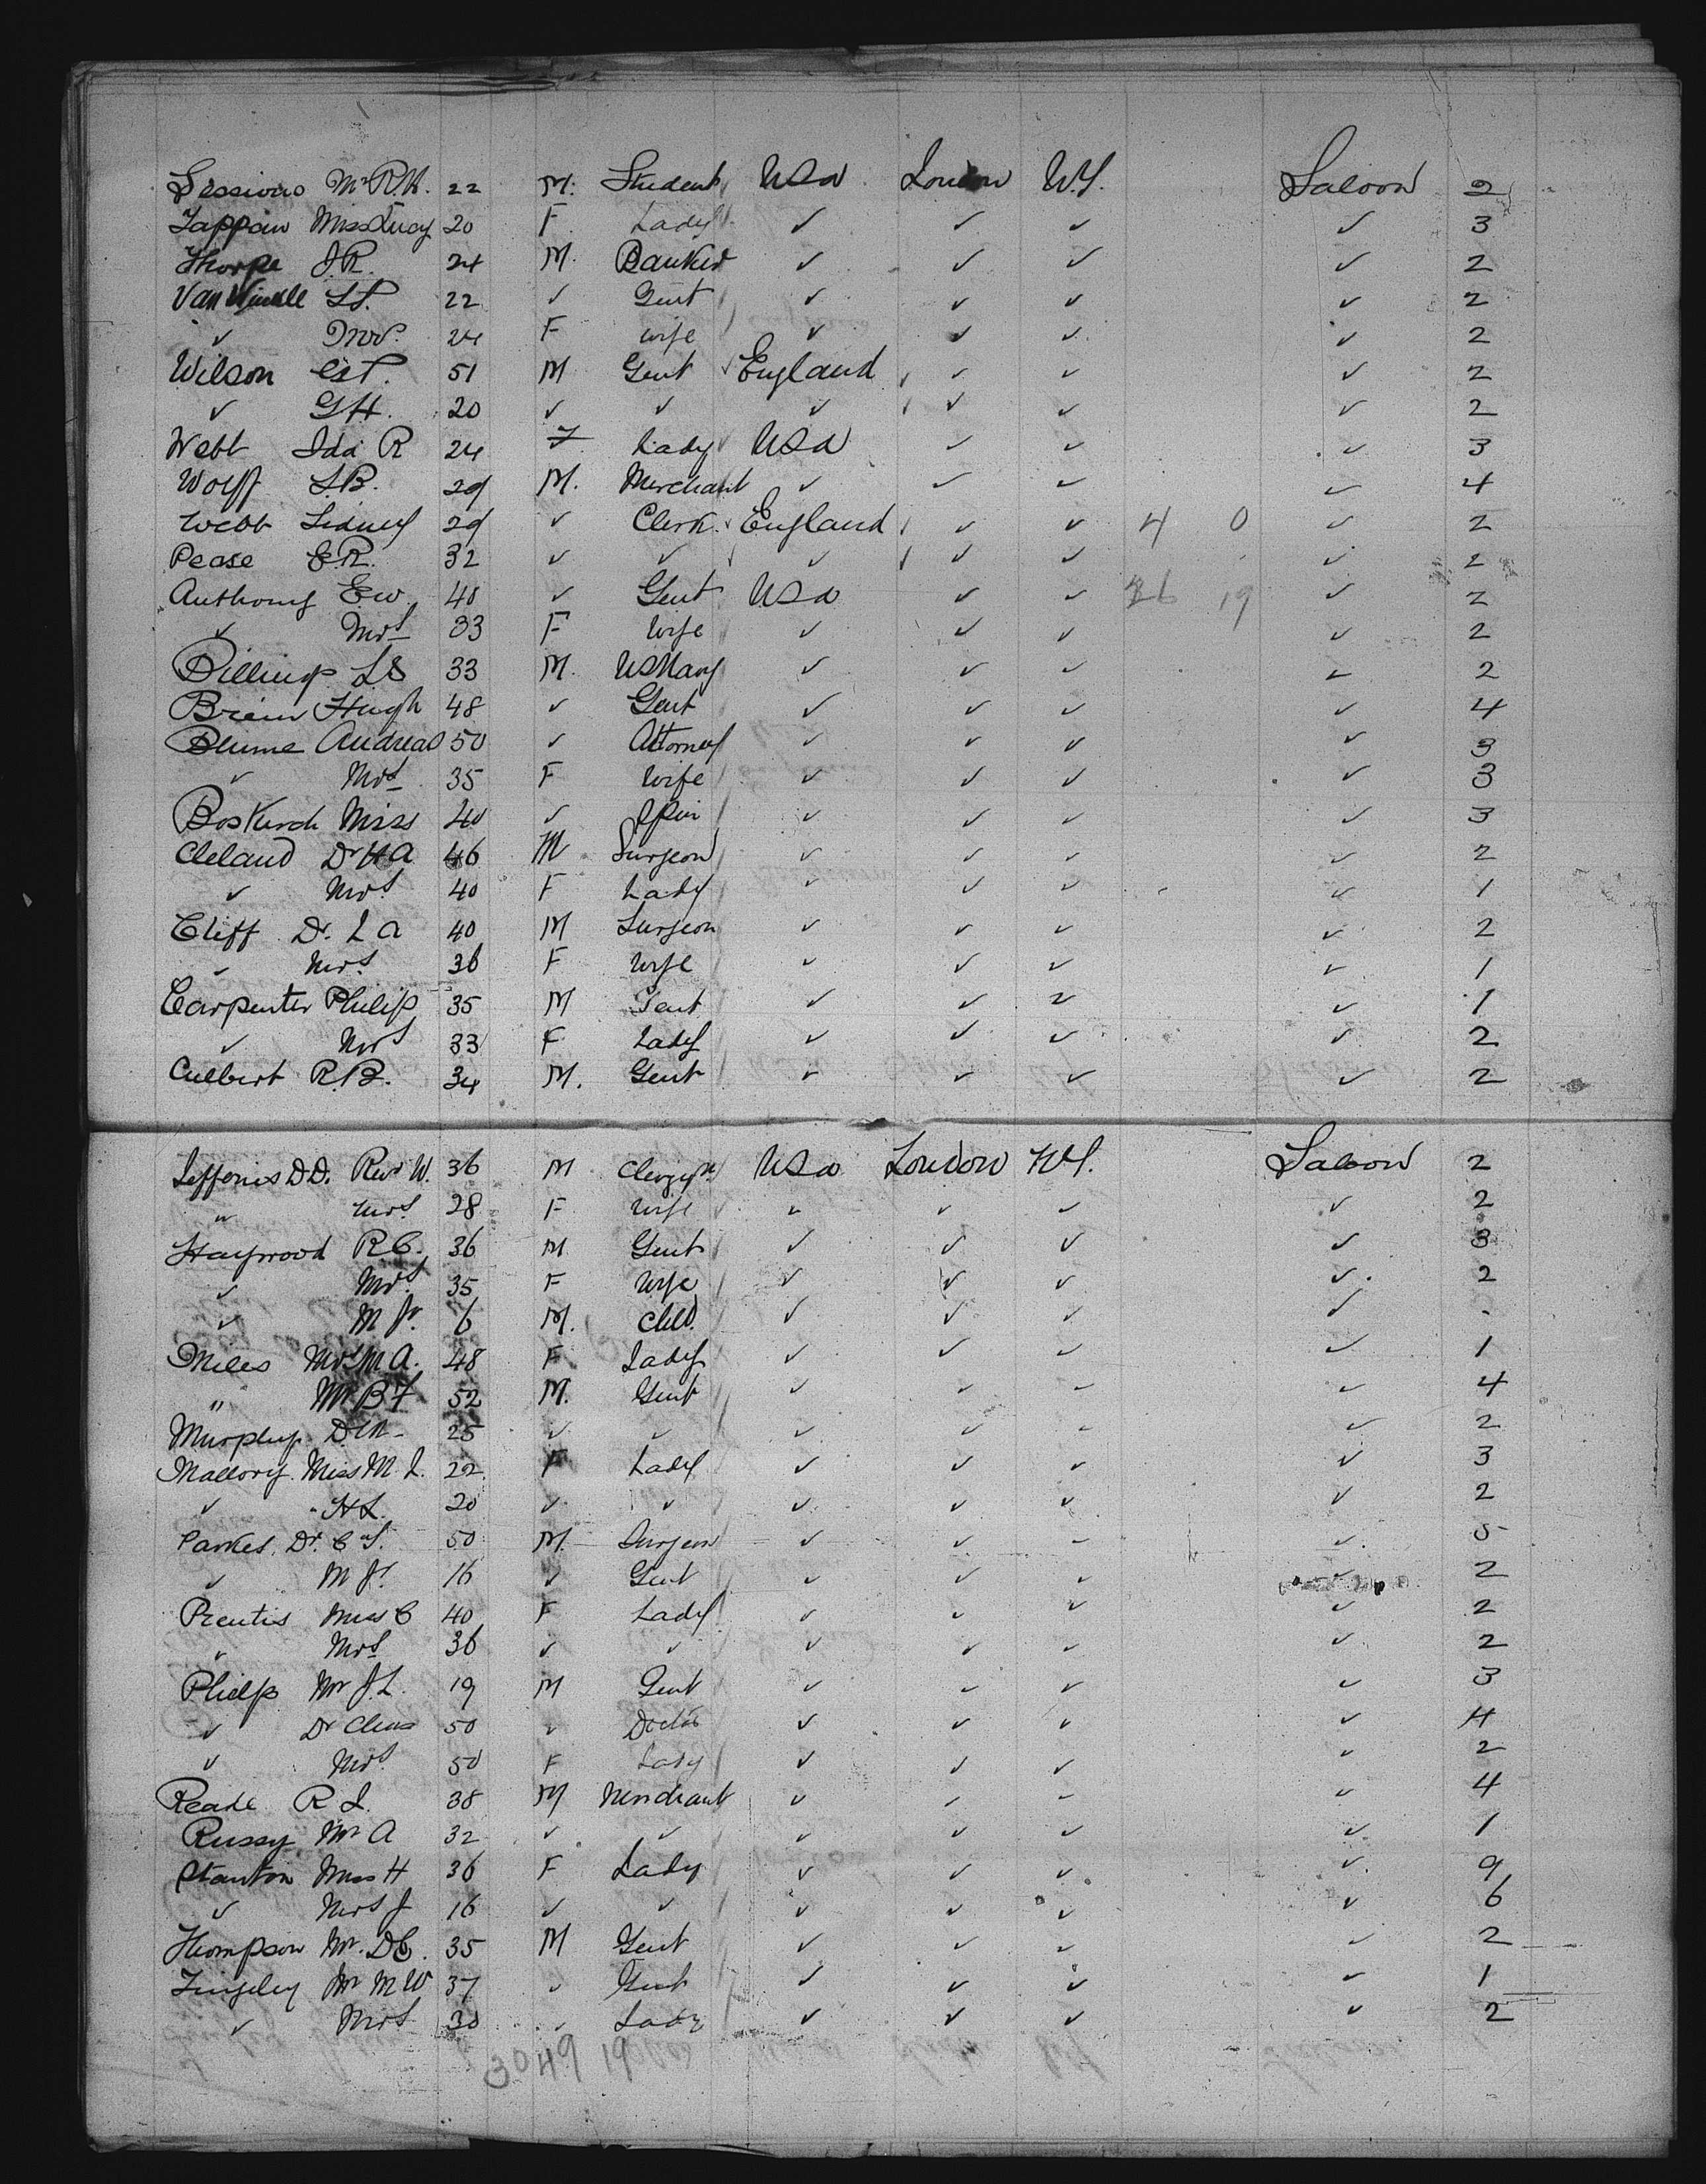 Sessions Mr R.H. 22 M. Student USA London N.Y. Saloon 2
Tappan Miss Lucy 20 F Lady ✓ ✓ ✓ ✓ 3
Thorpe J.R. 24 M. Banker ✓ ✓ ✓ ✓ 2
Van Winkle 22 ✓ Gent ✓ ✓ ✓ ✓ 2
✓ Mrs. 24 F wife ✓ ✓ ✓ ✓ 2
Wilson 51 M Gent England ✓ ✓ ✓ 2
✓ G.H. 20 ✓ ✓ ✓ ✓ ✓ ✓ 2
Webb Ida R 24 F Lady USA ✓ ✓ ✓ 3
Wolff S.B. 29 M. Merchant ✓ ✓ ✓ ✓ 4
Webb Sidney 29 ✓ Clerk England ✓ ✓ 4 0 ✓ 2
Pease E.R. 32 ✓ ✓ ✓ ✓ ✓ ✓ 2
Anthony E.W. 40 ✓ Gent USA ✓ ✓ 26 19 ✓ 2
✓ Mrs 33 F Wife ✓ ✓ ✓ ✓ 2
Billings L S 33 M. US Navy ✓ ✓ ✓ ✓ 2
Hugh 48 ✓ Gent ✓ ✓ ✓ ✓ 4
Blume Andreas 50 ✓ Attorney ✓ ✓ ✓ ✓ 3
✓ Mrs 35 F Wife ✓ ✓ ✓ ✓ 3
Boskerch Miss 40 ✓ Spin ✓ ✓ ✓ ✓ 3
Cleland Dr H A 46 M Surgeon ✓ ✓ ✓ ✓ 2
✓ Mrs. 40 F Lady ✓ ✓ ✓ ✓ 1
Cliff Dr. L A 40 M Surgeon ✓ ✓ ✓ ✓ 2
✓ Mrs. 36 F Wife ✓ ✓ ✓ ✓ 1
Carpenter Philip 35 M Gent ✓ ✓ ✓ ✓ 1
✓ Mrs 33 F Lady ✓ ✓ ✓ ✓ 2
Culbert R.B. 34 M. Gent ✓ ✓ ✓ ✓ 2
Jefferis D.D. Revd W. 36 M Clergyn. USA London N.Y. Saloon 2
" Mrs. 28 F Wife ✓ ✓ ✓ ✓ 2
Haywood R.C. 36 M Gent ✓ ✓ ✓ ✓ 3
✓ Mrs. 35 F Wife ✓ ✓ ✓ ✓ 2
✓ M Jr. 6 M. Child. ✓ ✓ ✓ ✓ -
Miles Mrs M A. 48 F Lady ✓ ✓ ✓ ✓ 1
" Mr B F 52 M. Gent ✓ ✓ ✓ ✓ 4
Murphy 25 ✓ ✓ ✓ ✓ ✓ ✓ 2
Mallory Miss M. L. 22 F Lady ✓ ✓ ✓ ✓ 3
✓ " H L. 20 ✓ ✓ ✓ ✓ ✓ ✓ 2
Parkes. Dr. C. S. 50 M. Surgeon ✓ ✓ ✓ ✓ 5
✓ M Jr. 16 ✓ Gent ✓ ✓ ✓ ✓ 2
Prentis Miss C 40 F Lady ✓ ✓ ✓ ✓ 2
✓ Mrs 36 ✓ ✓ ✓ ✓ ✓ ✓ 2
Phelps Mr J.L. 19 M Gent ✓ ✓ ✓ ✓ 3
✓ Dr Chas 50 ✓ Doctor ✓ ✓ ✓ ✓ 4
✓ Mrs. 50 F Lady ✓ ✓ ✓ ✓ 2
Reade R L. 38 M Merchant ✓ ✓ ✓ ✓ 4
Russy Mr A 32 ✓ ✓ ✓ ✓ ✓ ✓ 1
Stanton Miss H 36 F Lady ✓ ✓ ✓ ✓ 9
✓ Mrs J 16 ✓ ✓ ✓ ✓ ✓ ✓ 6
Thompson Mr. D C. 35 M Gent ✓ ✓ ✓ ✓ 2
Tingley Mr M W 37 ✓ Gent ✓ ✓ ✓ ✓ 1
✓ Mrs 30 ✓ Lady ✓ ✓ ✓ ✓ 2
30 49 19